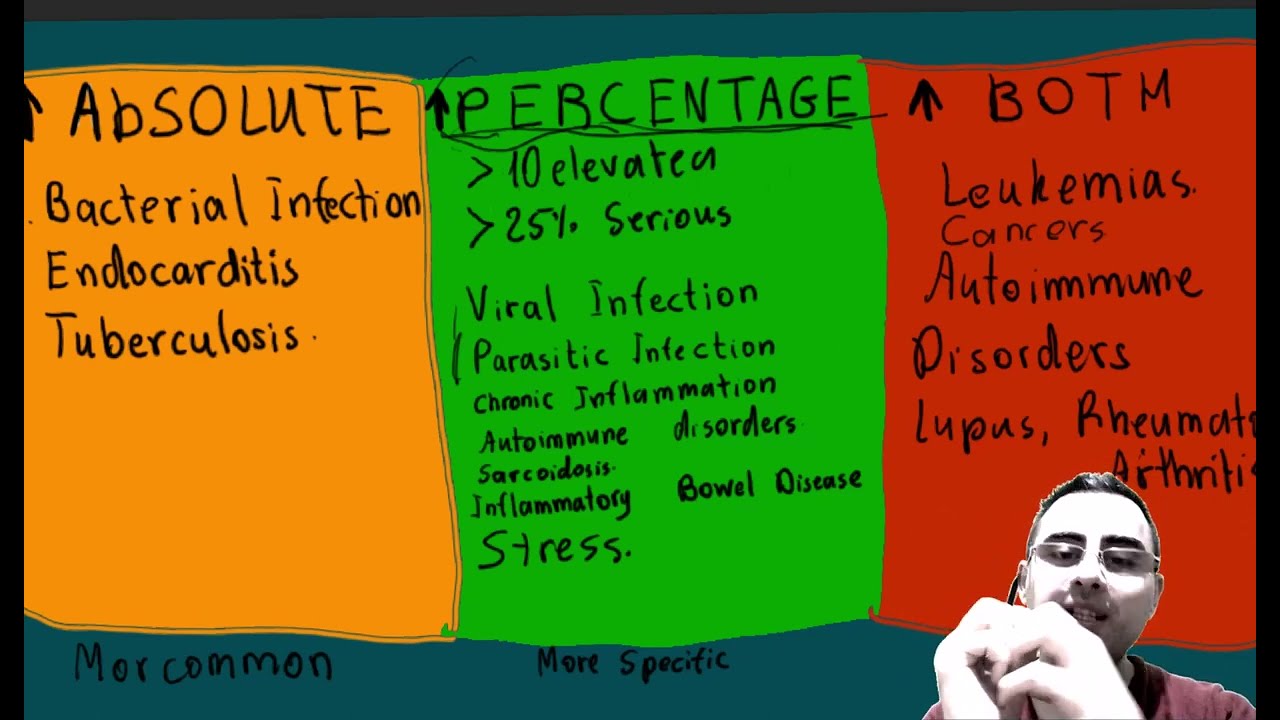 ↑ AbSOLUTE
Bacterial Infection
Endocarditis
Tuberculosis.
Morcommon
↑ PERCENTAGE
> 10 elevated
> 25% Serious
Viral Infection
Parasitic Infection
Chronic Inflammation
Autoimmune disorders
Sarcoidosis.
Inflammatory Bowel Disease
Stress.
More Specific
↑ BOTH
Leukemias.
Cancers
Autoimmune
Disorders
Lupus, Rheumato
Arthritis